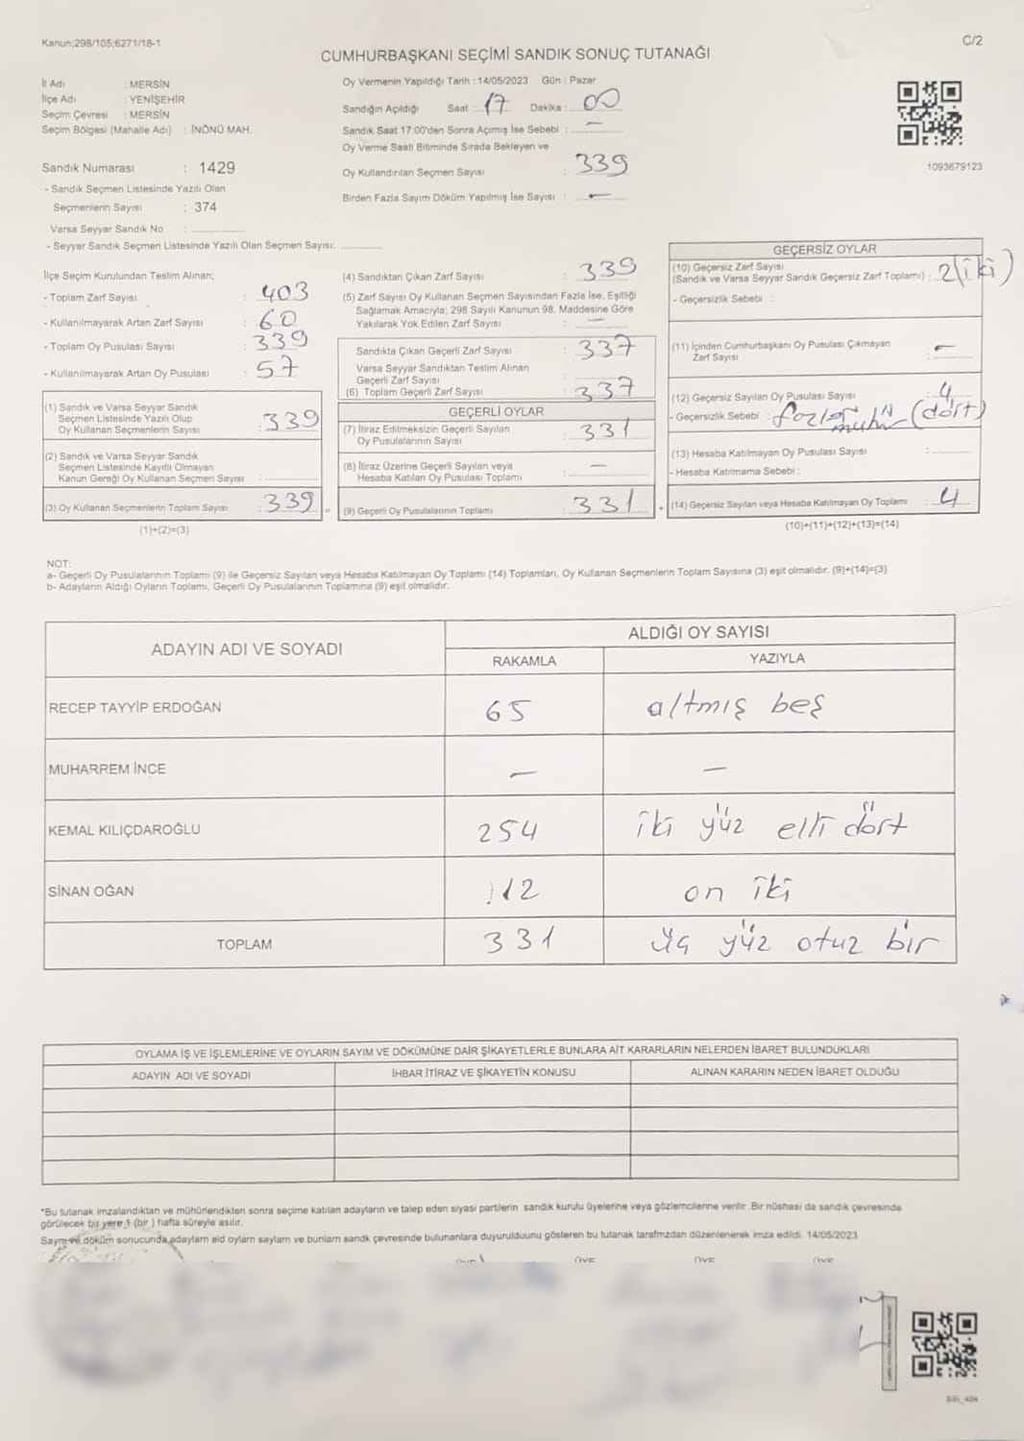 Kanun;298/105;6271/18-1
C/2
CUMHURBAŞKANI SEÇİMİ SANDIK SONUÇ TUTANAĞI
İl Adı : MERSİN
İlçe Adı : YENİŞEHİR
Seçim Çevresi : MERSİN
Seçim Bölgesi (Mahalle Adı) : İNÖNÜ MAH.
Sandık Numarası : 1429
- Sandık Seçmen Listesinde Yazılı Olan
Seçmenlerin Sayısı : 374
Varsa Seyyar Sandık No :
- Seyyar Sandık Seçmen Listesinde Yazılı Olan Seçmen Sayısı:
Oy Vermenin Yapıldığı Tarih : 14/05/2023 Gün : Pazar
Sandığın Açıldığı Saat : 17 Dakika : 00
Sandık Saat 17:00'den Sonra Açılmış İse Sebebi : -
Oy Verme Saati Bitiminde Sırada Bekleyen ve
Oy Kullandırılan Seçmen Sayısı : 339
Birden Fazla Sayım Döküm Yapılmış İse Sayısı : -
1093679123
İlçe Seçim Kurulundan Teslim Alınan;
- Toplam Zarf Sayısı : 403
- Kullanılmayarak Artan Zarf Sayısı : 60
- Toplam Oy Pusulası Sayısı : 339
- Kullanılmayarak Artan Oy Pusulası : 57
(1) Sandık ve Varsa Seyyar Sandık
Seçmen Listesinde Yazılı Olup
Oy Kullanan Seçmenlerin Sayısı : 339
(2) Sandık ve Varsa Seyyar Sandık
Seçmen Listesinde Kayıtlı Olmayan
Kanun Gereği Oy Kullanan Seçmen Sayısı :
(3) Oy Kullanan Seçmenlerin Toplam Sayısı : 339
(1)+(2)=(3)
(4) Sandıktan Çıkan Zarf Sayısı : 339
(5) Zarf Sayısı Oy Kullanan Seçmen Sayısından Fazla İse, Eşitliği
Sağlamak Amacıyla; 298 Sayılı Kanunun 98. Maddesine Göre
Yakılarak Yok Edilen Zarf Sayısı : -
Sandıkta Çıkan Geçerli Zarf Sayısı : 337
Varsa Seyyar Sandıktan Teslim Alınan
Geçerli Zarf Sayısı :
(6) Toplam Geçerli Zarf Sayısı : 337
GEÇERLİ OYLAR
(7) İtiraz Edilmeksizin Geçerli Sayılan
Oy Pusulalarının Sayısı : 331
(8) İtiraz Üzerine Geçerli Sayılan veya
Hesaba Katılan Oy Pusulası Toplamı : -
(9) Geçerli Oy Pusulalarının Toplamı : 331
GEÇERSİZ OYLAR
(10) Geçersiz Zarf Sayısı
(Sandık ve Varsa Seyyar Sandık Geçersiz Zarf Toplamı) : 2 (iki)
- Geçersizlik Sebebi :
(11) İçinden Cumhurbaşkanı Oy Pusulası Çıkmayan
Zarf Sayısı : -
(12) Geçersiz Sayılan Oy Pusulası Sayısı : 4
- Geçersizlik Sebebi : (dört)
(13) Hesaba Katılmayan Oy Pusulası Sayısı :
- Hesaba Katılmama Sebebi :
(14) Geçersiz Sayılan veya Hesaba Katılmayan Oy Toplamı : 4
(10)+(11)+(12)+(13)=(14)
NOT:
a- Geçerli Oy Pusulalarının Toplamı (9) ile Geçersiz Sayılan veya Hesaba Katılmayan Oy Toplamı (14) Toplamları, Oy Kullanan Seçmenlerin Toplam Sayısına (3) eşit olmalıdır. (9)+(14)=(3)
b- Adayların Aldığı Oyların Toplamı, Geçerli Oy Pusulalarının Toplamına (9) eşit olmalıdır.
ADAYIN ADI VE SOYADI
ALDIĞI OY SAYISI
RAKAMLA YAZIYLA
RECEP TAYYİP ERDOĞAN 65 altmış beş
MUHARREM İNCE - -
KEMAL KILIÇDAROĞLU 254 iki yüz elli dört
SİNAN OĞAN 12 on iki
TOPLAM 331 üç yüz otuz bir
OYLAMA İŞ VE İŞLEMLERİNE VE OYLARIN SAYIM VE DÖKÜMÜNE DAİR ŞİKAYETLERLE BUNLARA AİT KARARLARIN NELERDEN İBARET BULUNDUKLARI
ADAYIN ADI VE SOYADI İHBAR İTİRAZ VE ŞİKAYETİN KONUSU ALINAN KARARIN NEDEN İBARET OLDUĞU
*Bu tutanak imzalandıktan ve mühürlendikten sonra seçime katılan adayların ve talep eden siyasi partilerin sandık kurulu üyelerine veya gözlemcilerine verilir. Bir nüshası da sandık çevresinde
görülecek bir yere 1 (bir) hafta süreyle asılır.
Sayım ve döküm sonucunda adayların aldığı oyların sayıları ve bunların sandık çevresinde bulunanlara duyurulduğunu gösteren bu tutanak tarafımızdan düzenlenerek imza edildi. 14/05/2023
ÜYE ÜYE ÜYE ÜYE